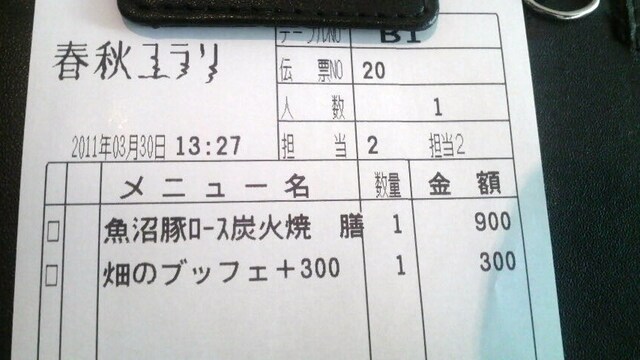 テーブルNO B1
春秋ユラリ
伝票NO 20
人数 1
2011年03月30日 13:27
担当 2 担当2
メニュー名 数量 金額
□ 魚沼豚ﾛｰｽ炭火焼 膳 1 900
□ 畑のブッフェ+300 1 300